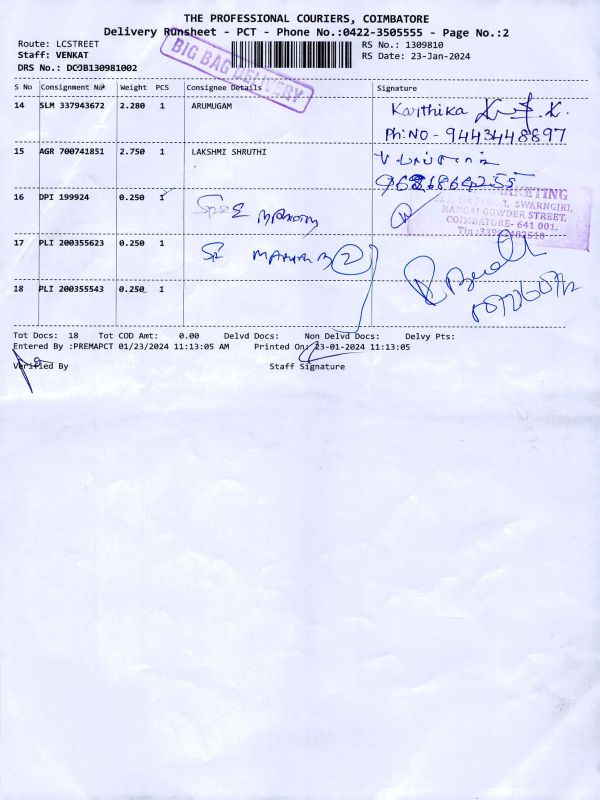 THE PROFESSIONAL COURIERS, COIMBATORE
Delivery Runsheet - PCT - Phone No.:0422-3505555 - Page No.:2
Route: LCSTREET
RS No.: 1309810
Staff: VENKAT
RS Date: 23-Jan-2024
DRS No.: DCJB130981002
BIG BAG DELIVERY
S No Consignment No Weight PCS Consignee Details Signature
14 SLM 337943672 2.280 1 ARUMUGAM
Karthika
Ph:NO - 9443448897
15 AGR 700741851 2.750 1 LAKSHMI SHRUTHI
16 DPI 199924 0.250 1
SWARNGIRI,
GOWDER STREET,
COIMBATORE- 641 001.
17 PLI 200355623 0.250 1
2
18 PLI 200355543 0.250 1
Tot Docs: 18 Tot COD Amt: 0.00 Delvd Docs: Non Delvd Docs: Delvy Pts:
Entered By :PREMAPCT 01/23/2024 11:13:05 AM Printed On: 23-01-2024 11:13:05
Verified By Staff Signature